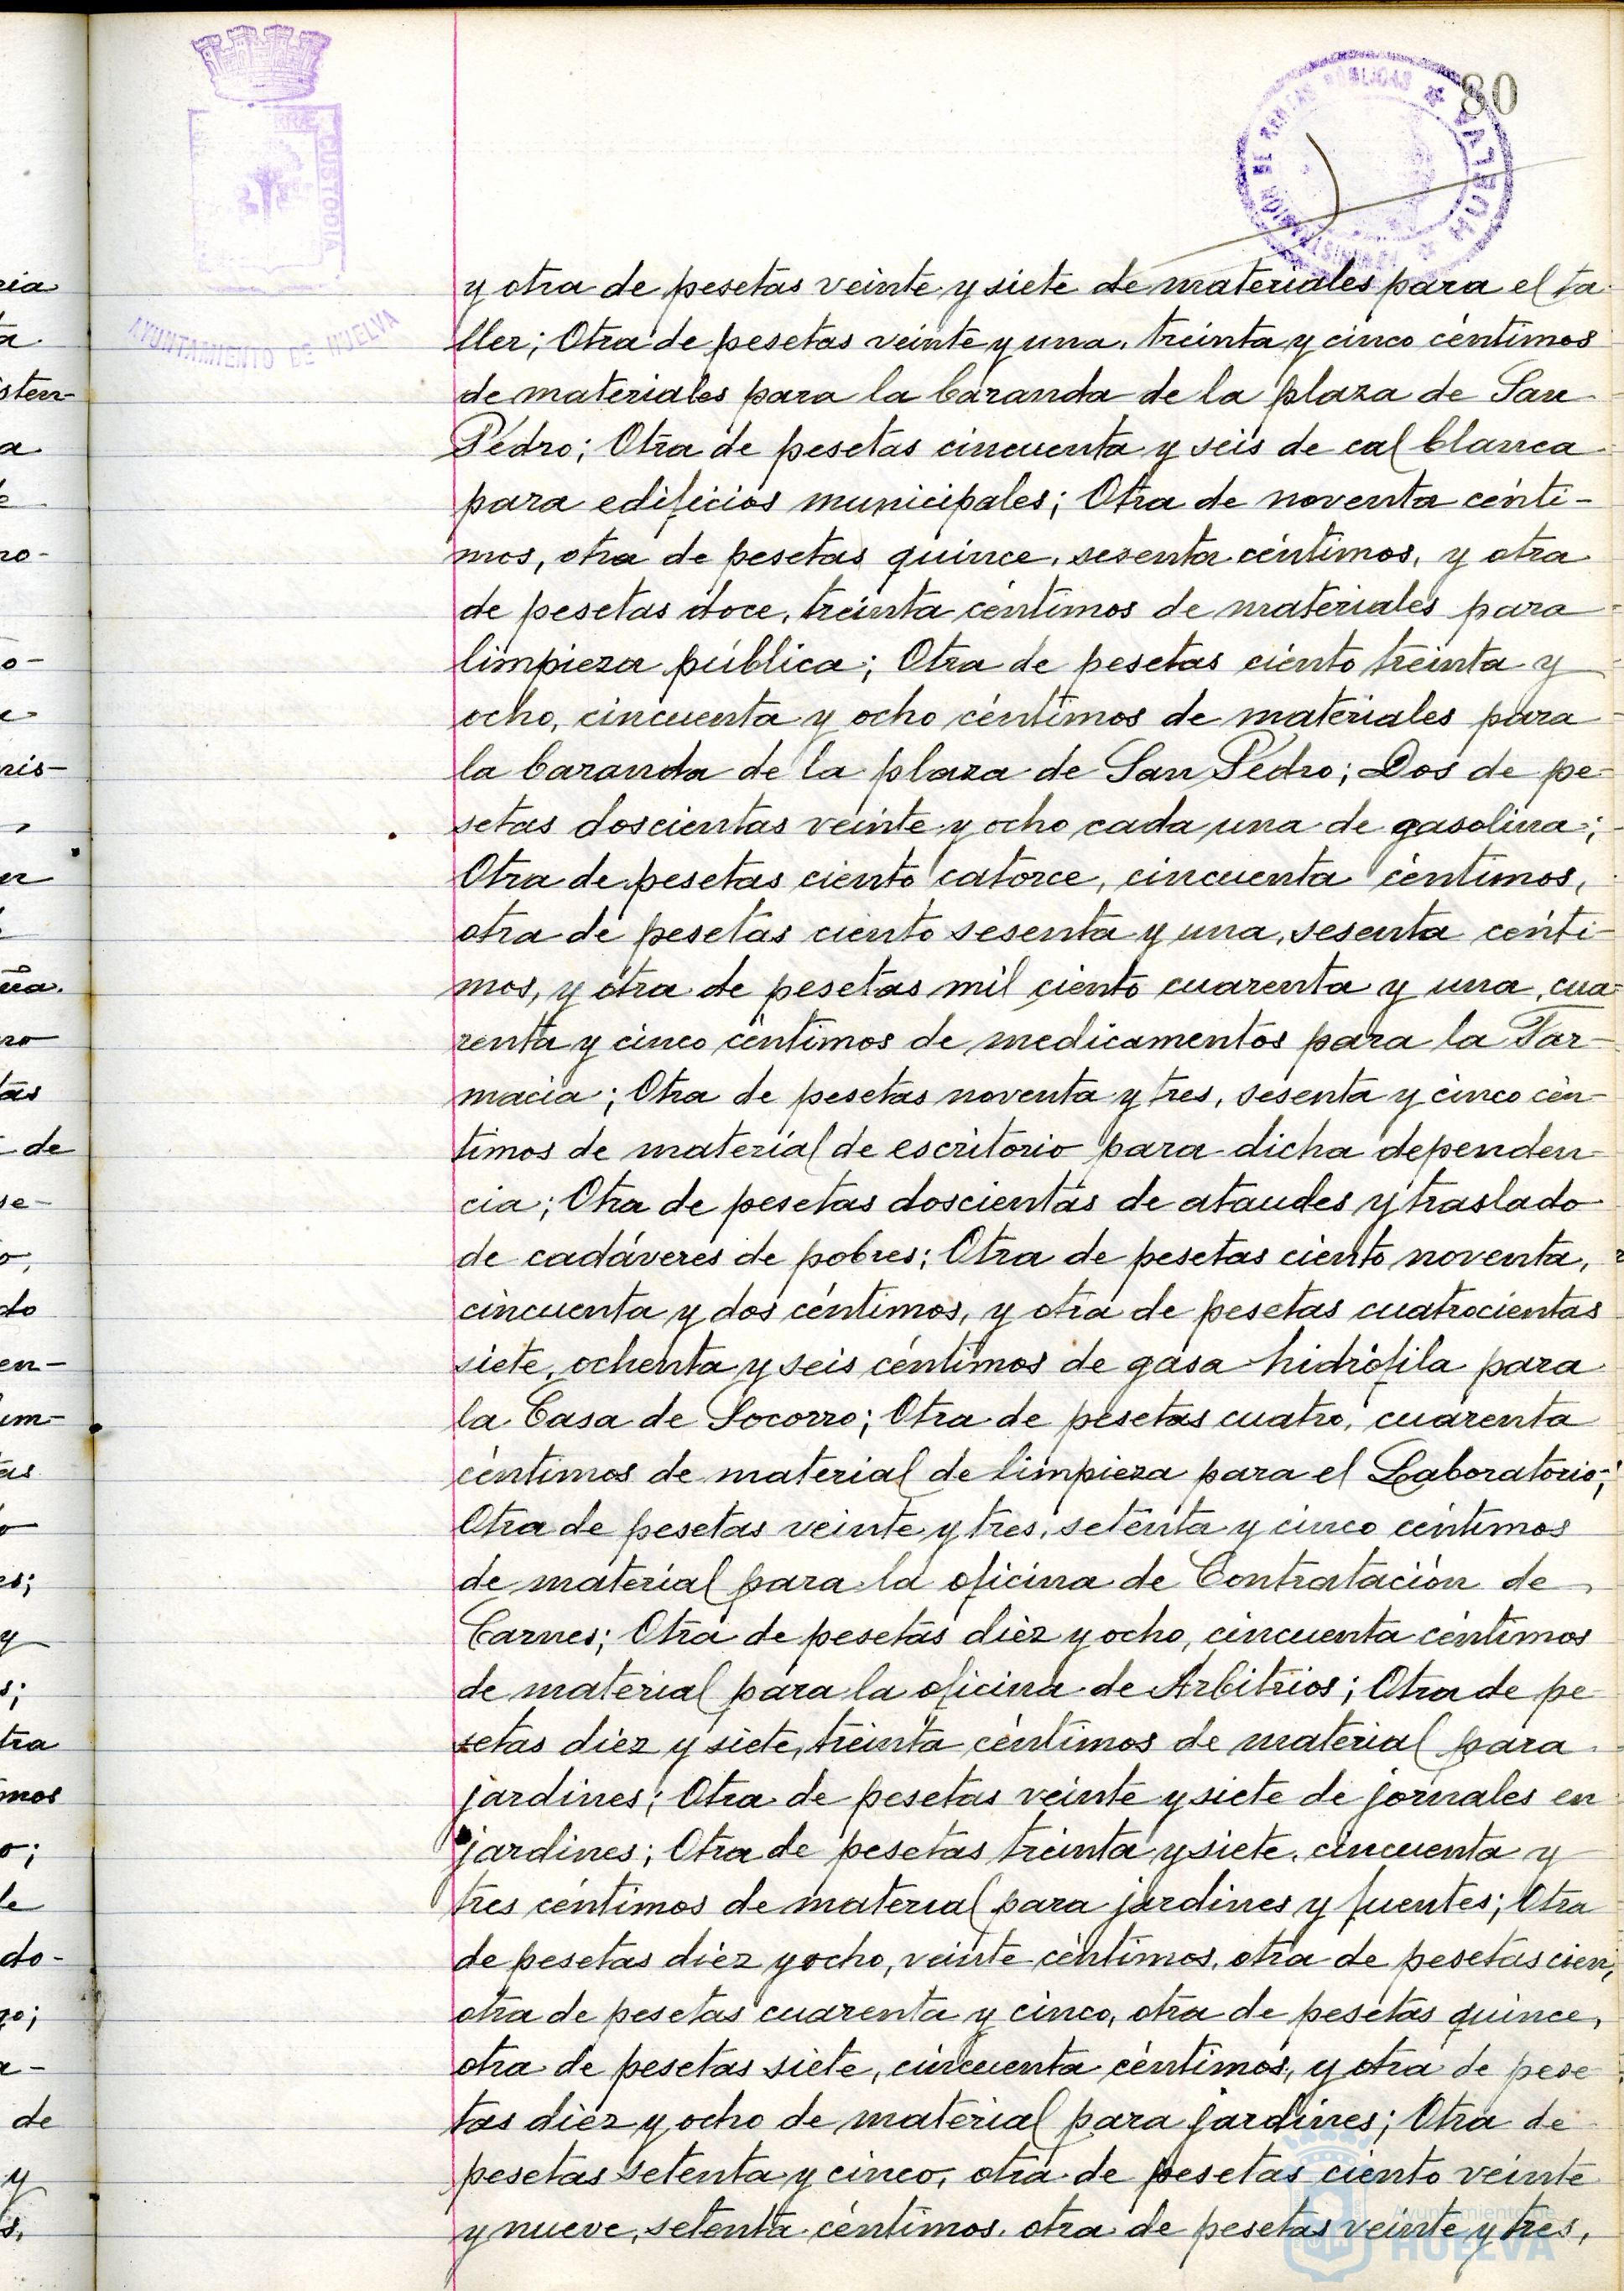 80
TERRÆ CUSTODIA
AYUNTAMIENTO DE HUELVA
HUELVA
y otra de pesetas veinte y siete de materiales para el ta-
ller; Otra de pesetas veinte y una, treinta y cinco céntimos
de materiales para la baranda de la plaza de San
Pedro; Otra de pesetas cincuenta y seis de cal blanca
para edificios municipales; Otra de noventa cénti-
mos, otra de pesetas quince, sesenta céntimos, y otra
de pesetas doce, treinta céntimos de materiales para
limpieza pública; Otra de pesetas ciento treinta y
ocho, cincuenta y ocho céntimos de materiales para
la baranda de la plaza de San Pedro; Dos de pe-
setas doscientas veinte y ocho cada una de gasolina;
Otra de pesetas ciento catorce, cincuenta céntimos,
otra de pesetas ciento sesenta y una, sesenta cénti-
mos, y otra de pesetas mil ciento cuarenta y una, cua-
renta y cinco céntimos de medicamentos para la Far-
macia; Otra de pesetas noventa y tres, sesenta y cinco cén-
timos de material de escritorio para dicha dependen-
cia; Otra de pesetas doscientas de ataudes y traslado
de cadáveres de pobres; Otra de pesetas ciento noventa,
cincuenta y dos céntimos, y otra de pesetas cuatrocientas
siete, ochenta y seis céntimos de gasa hidrófila para
la Casa de Socorro; Otra de pesetas cuatro, cuarenta
céntimos de material de limpieza para el Laboratorio;
Otra de pesetas veinte y tres, setenta y cinco céntimos
de material para la oficina de Contratación de
Carnes; Otra de pesetas diez y ocho, cincuenta céntimos
de material para la oficina de Arbitrios; Otra de pe-
setas diez y siete, treinta céntimos de material para
jardines; Otra de pesetas veinte y siete de jornales en
jardines; Otra de pesetas treinta y siete, cincuenta y
tres céntimos de material para jardines y fuentes; Otra
de pesetas diez y ocho, veinte céntimos, otra de pesetas cien,
otra de pesetas cuarenta y cinco, otra de pesetas quince,
otra de pesetas siete, cincuenta céntimos, y otra de pese
tas diez y ocho de material para jardines; Otra de
pesetas setenta y cinco, otra de pesetas ciento veinte
y nueve, setenta céntimos, otra de pesetas veinte y tres,
Ayuntamiento de
HUELVA